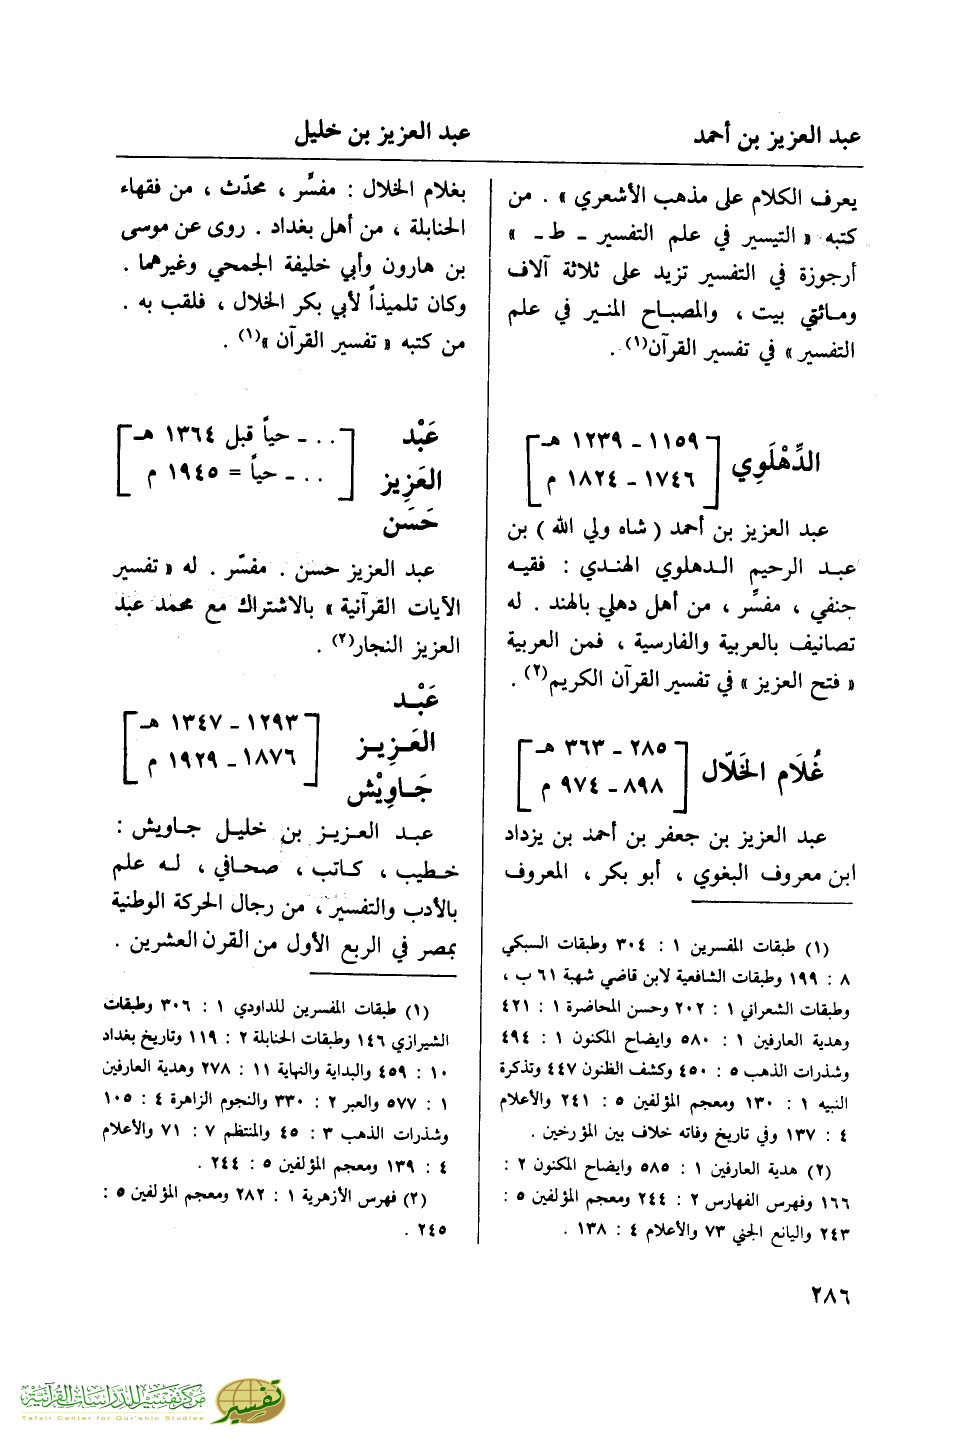 عبد العزيز بن أحمد
عبد العزيز بن خليل
يعرف الكلام على مذهب الأشعري » . من
كتبه « التيسير في علم التفسير ـ ط ـ »
أرجوزة في التفسير تزيد على ثلاثة آلاف
ومائتي بيت ، والمصباح المنير في علم
التفسير » في تفسير القرآن(١) .
الدِّهْلَوِي
[ ١١٥٩ - ١٢٣٩ هـ
١٧٤٦ - ١٨٢٤ م ]
عبد العزيز بن أحمد ( شاه ولي الله ) بن
عبد الرحيم الدهلوي الهندي : فقيه
حنفي ، مفسِّر ، من أهل دهلي بالهند . له
تصانيف بالعربية والفارسية ، فمن العربية
« فتح العزيز » في تفسير القرآن الكريم(٢) .
غُلَام الخَلّال
[ ٢٨٥ - ٣٦٣ هـ
٨٩٨ - ٩٧٤ م ]
عبد العزيز بن جعفر بن أحمد بن يزداد
ابن معروف البغوي ، أبو بكر ، المعروف
(١) طبقات المفسرين ١ : ٣٠٤ وطبقات السبكي
٨ : ١٩٩ وطبقات الشافعية لابن قاضي شهبة ٦١ ب ،
وطبقات الشعراني ١ : ٢٠٢ وحسن المحاضرة ١ : ٤٢١
وهدية العارفين ١ : ٥٨٠ وايضاح المكنون ١ : ٤٩٤
وشذرات الذهب ٥ : ٤٥٠ وكشف الظنون ٤٤٧ وتذكرة
النبيه ١ : ١٣٠ ومعجم المؤلفين ٥ : ٢٤١ والأعلام
٤ : ١٣٧ وفي تاريخ وفاته خلاف بين المؤرخين .
(٢) هدية العارفين ١ : ٥٨٥ وايضاح المكنون ٢ :
١٦٦ وفهرس الفهارس ٢ : ٢٤٤ ومعجم المؤلفين ٥ :
٢٤٣ واليانع الجني ٧٣ والأعلام ٤ : ١٣٨ .
بغلام الخلال : مفسِّر ، محدّث ، من فقهاء
الحنابلة ، من أهل بغداد . روى عن موسى
بن هارون وأبي خليفة الجمحي وغيرهما .
وكان تلميذاً لأبي بكر الخلال ، فلقب به .
من كتبه « تفسير القرآن »(١) .
عَبْد
العَزِيز
حَسَن
[ . . ـ حياً قبل ١٣٦٤ هـ
. . ـ حياً = ١٩٤٥ م ]
عبد العزيز حسن . مفسّر . له « تفسير
الآيات القرآنية » بالاشتراك مع محمد عبد
العزيز النجار(٢) .
عَبْد
العَزِيز
جَاوِيْش
[ ١٢٩٣ - ١٣٤٧ هـ
١٨٧٦ - ١٩٢٩ م ]
عبد العزيز بن خليل جاويش :
خطيب ، كاتب ، صحافي ، له علم
بالأدب والتفسير ، من رجال الحركة الوطنية
بمصر في الربع الأول من القرن العشرين .
(١) طبقات المفسرين للداودي ١ : ٣٠٦ وطبقات
الشيرازي ١٤٦ وطبقات الحنابلة ٢ : ١١٩ وتاريخ بغداد
١٠ : ٤٥٩ والبداية والنهاية ١١ : ٢٧٨ وهدية العارفين
١ : ٥٧٧ والعبر ٢ : ٣٣٠ والنجوم الزاهرة ٤ : ١٠٥
وشذرات الذهب ٣ : ٤٥ والمنتظم ٧ : ٧١ والأعلام
٤ : ١٣٩ ومعجم المؤلفين ٥ : ٢٤٤ .
(٢) فهرس الأزهرية ١ : ٢٨٢ ومعجم المؤلفين ٥ :
٢٤٥ .
٢٨٦
مركز تفسير للدراسات القرآنية
Tafsir Center for Qur'anic Studies
تفسير